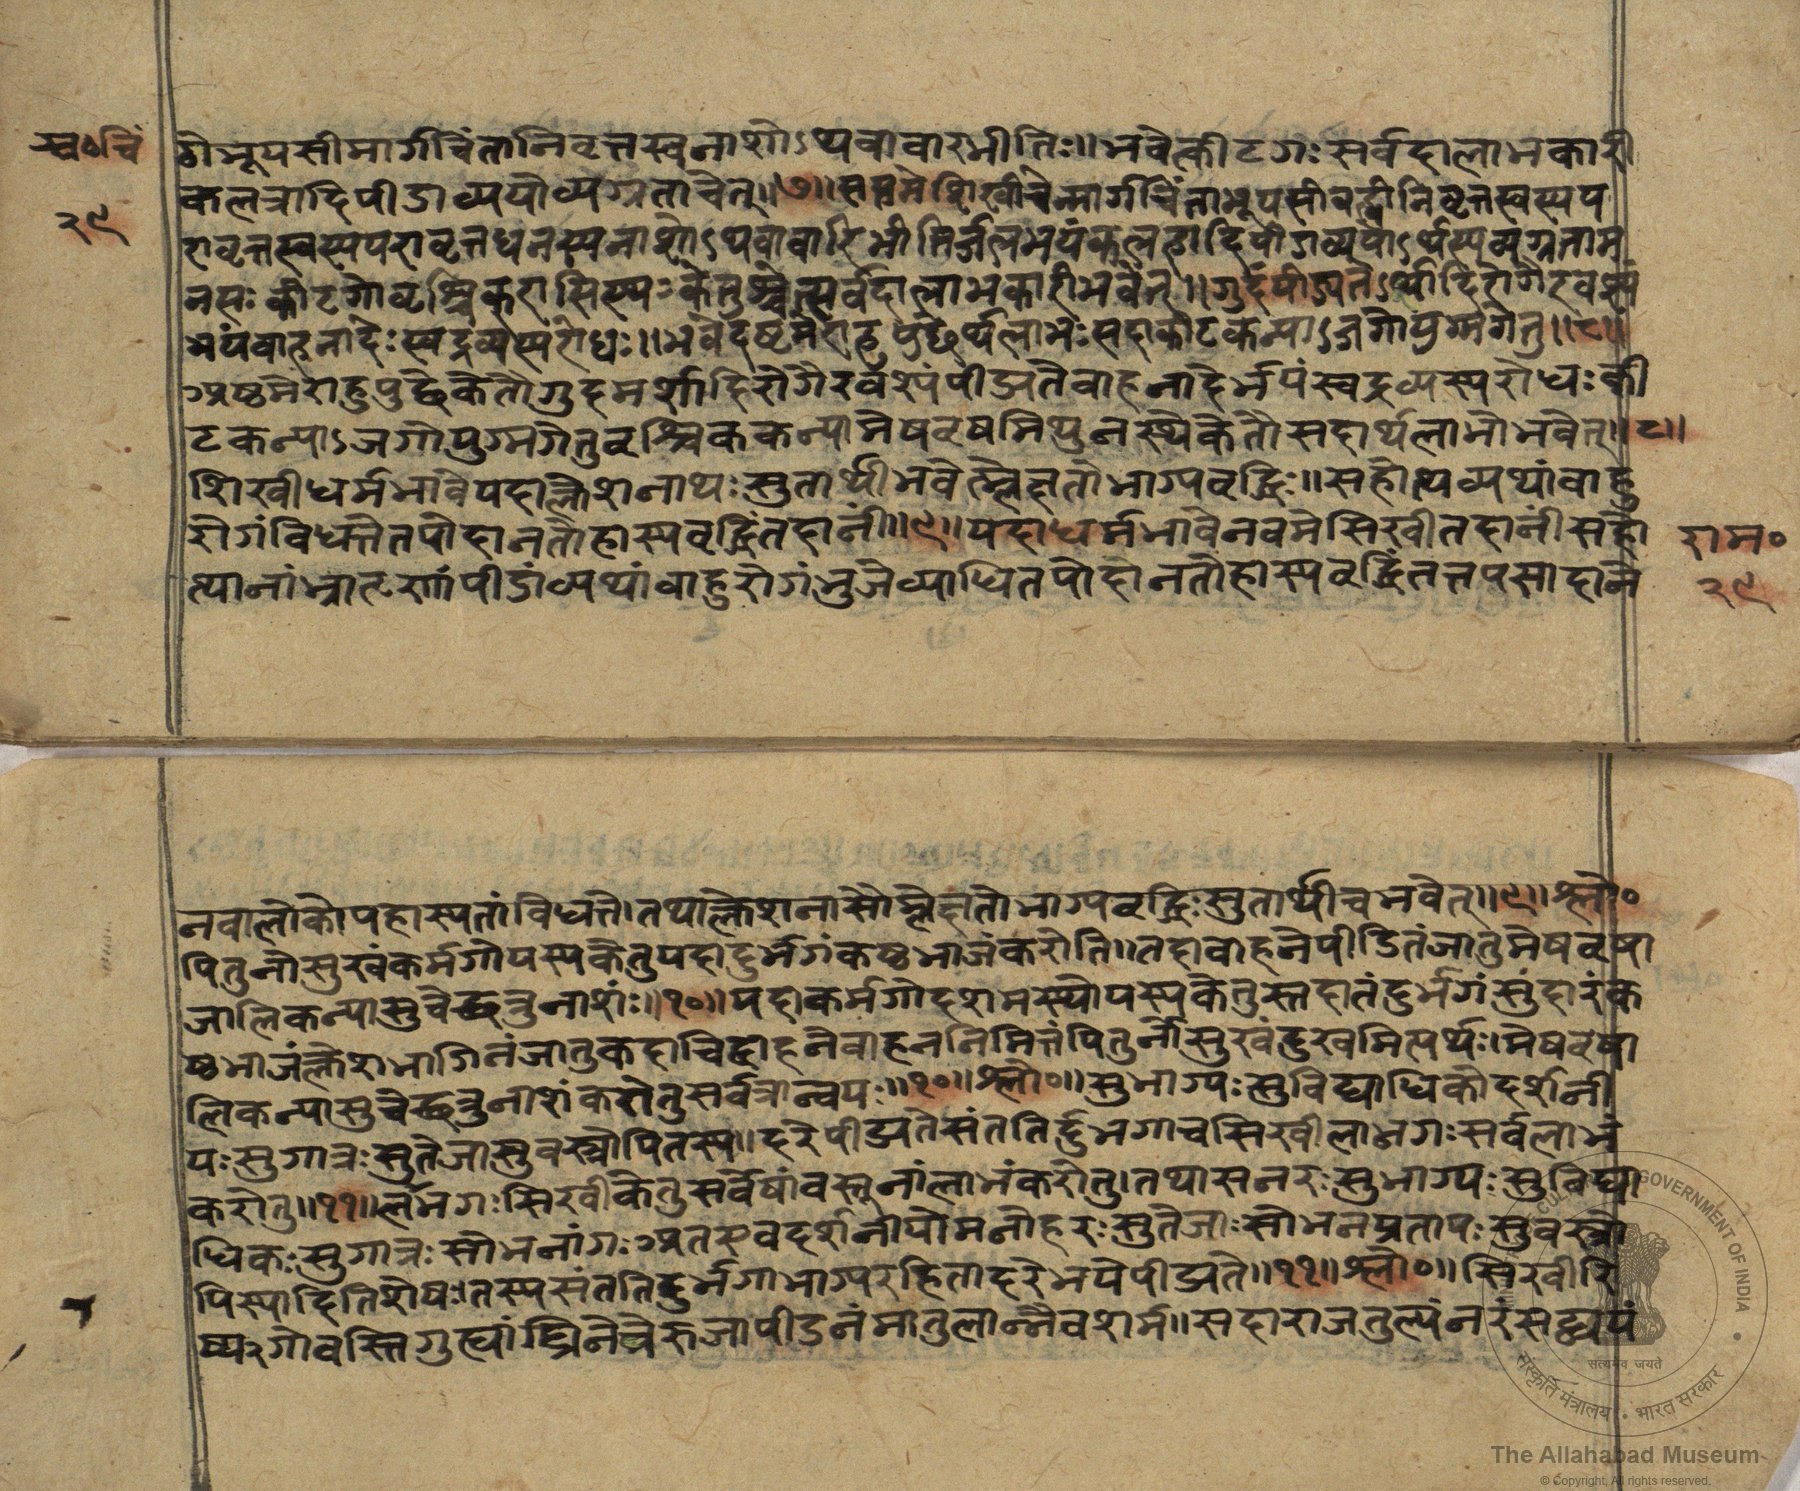 ख०चिं
२९
ठोभूपसीमार्गचिंतानिवृत्तस्वनाशोऽथवावारभीतिः॥भवेत्कीटगःसर्वदालाभकारी
कलत्रादिपीडाव्ययोव्यग्रताचेत्॥७॥सप्तमेशिखीचेन्मार्गचिंताभूपसीवह्नीनिवृत्तस्वस्यप
रावृत्तस्वस्यपरावृत्तधनस्यनाशोऽथवावारिभीतिर्जलभयंकलत्रादिपीडाव्ययोऽर्थस्यव्यग्रताम
नसःकीटगोवृश्चिकराशिस्थःकेतुश्चेत्सर्वदालाभंकारीभवेत्॥गुदंपीड्यतेऽर्शादिरोगैरवश्यं
भयंवाहनादेःस्वद्रव्यस्यरोधः॥भवेदष्टमेराहुपुछेर्थलाभःसदाकीटकन्याऽजगोयुग्मगेतु॥८॥
अष्टमेराहुपुछेकेतौगुदमर्शादिरोगैरवश्यंपीड्यतेवाहनादेर्भयंस्वद्रव्यस्यरोधःकी
टकन्याऽजगोयुग्मगेतुवृश्चिककन्यामेषवृषमिथुनस्थेकेतौसदार्थलाभोभवेत्॥८॥
शिखीधर्मभावेयदाक्लेशनाथःसुतार्थीभवेत्म्लेछतोभाग्यवृद्धिः॥सहोत्थव्यथांबाहु
रोगंविधत्तेतपोदानतोहास्यवृद्धिंतदानीं॥९॥यदाधर्मभावेनवमेसिखीतदानींसहो
त्थानांभ्रातॄणांपीडांव्यथांबाहुरोगंभुजेव्याधितपोदानतोहास्यवृद्धिंतत्तपसादाने
राम०
२९
नवालोकोपहास्यतांविधत्ते।तथाक्लेशनासोम्लेछतोभाग्यवृद्धिःसुतार्थीचभवेत्॥९॥श्लो०
पितुनोसुखंकर्मगोयस्यकेतुयदादुर्भगंकष्टभाजंकरोति॥तदावाहनेपीडितंजातुमेषवृषा
जालिकन्यासुचेछत्रुनाशं॥१०॥यदाकर्मगोदशमस्थोयस्यकेतुस्तदातंदुर्भगंसुंदारंक
ष्टभाजंक्लेशभागिनंजातुकदाचिद्वाहनेवाहननिमित्तंपितुर्नोसुखंदुखमित्यर्थः।मेषवृषा
लिकन्यासुचेछत्रुनाशंकरोतुसर्वत्रान्वयः॥१०॥श्लो०॥सुभाग्यःसुविद्याधिकोदर्शनी
यःसुगात्रःसुतेजासुवस्त्रोपितस्य॥दरेपीड्यतेसंततिर्दुभगाचसिखीलाभगःसर्वलाभं
करोतु॥११॥लभगःसिखीकेतुसर्वेषांवस्तूनांलाभंकरोतु।तथासनरःसुभाग्यःसुविद्या
धिकःसुगात्रःसोभनांगःअतएवदर्शनीयोमनोहरःसुतेजाःसोभनप्रतापःसुवस्त्रो
पिस्यादितिशेषः।तस्यसंततिदुर्भगाभाग्यरहितादरेभयेपीड्यते॥११॥श्लो०॥सिखीरि
ष्यरगोवस्तिगुह्यांघ्रिनेत्रेरुजापीडनंमातुलान्नैवशर्म॥सदाराजतुल्यंनरंसद्व्ययं
GOVERNMENT OF INDIA
सत्यमेव जयते
संस्कृति मंत्रालय • भारत सरकार
The Allahabad Museum
© Copyright, All rights reserved.